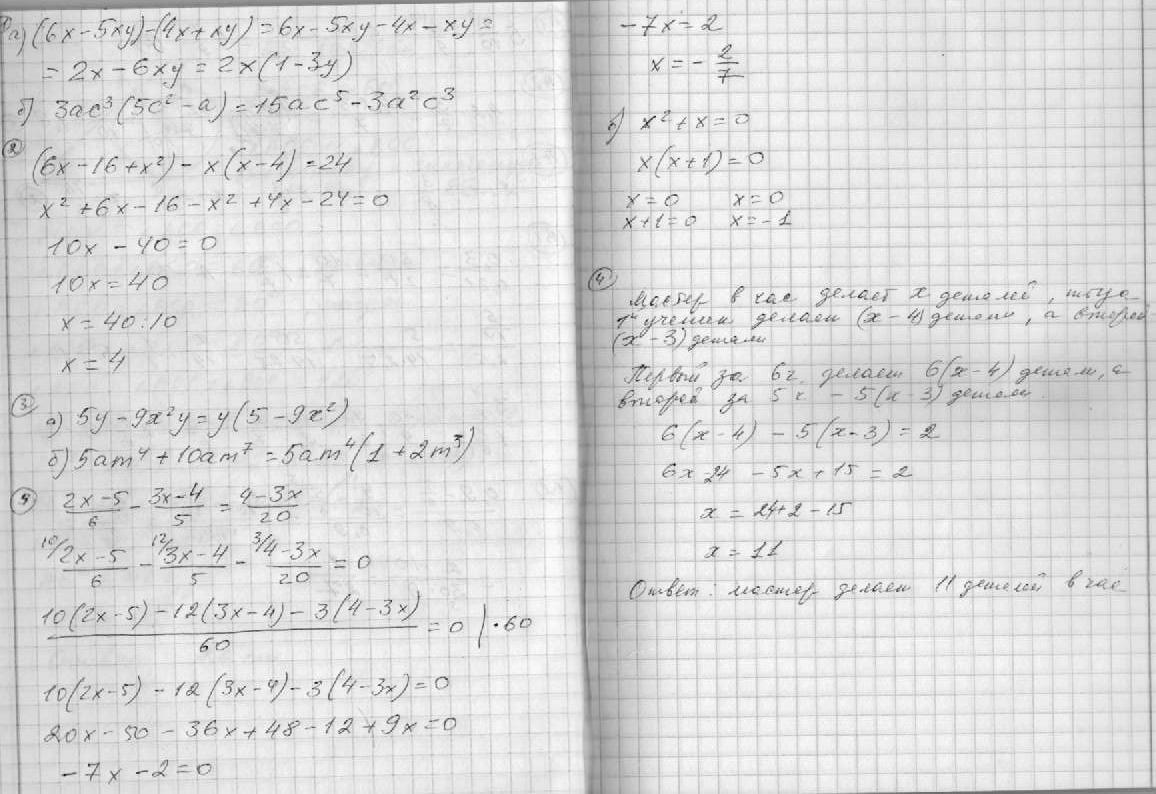 а) (6x-5xy)-(4x+xy)=6x-5xy-4x-xy=
=2x-6xy=2x(1-3y)
б) 3ac³(5c²-a)=15ac⁵-3a²c³
② (6x-16+x²)-x(x-4)=24
x²+6x-16-x²+4x-24=0
10x-40=0
10x=40
x=40:10
x=4
③ а) 5y-9x²y=y(5-9x²)
б) 5am⁴+10am⁷=5am⁴(1+2m³)
(2x-5)/6 - (3x-4)/5 = (4-3x)/20
10/ (2x-5)/6 - 12/ (3x-4)/5 - 3/ (4-3x)/20 = 0
(10(2x-5)-12(3x-4)-3(4-3x))/60 = 0 |·60
10(2x-5)-12(3x-4)-3(4-3x)=0
20x-50-36x+48-12+9x=0
-7x-2=0
-7x=2
x=-2/7
б) x²+x=0
x(x+1)=0
x=0 x=0
x+1=0 x=-1
④
Мастер в час делает x деталей, тогда
1й ученик делает (x-4) детали, а второй
(x-3) детали
Первый за 6ч. делает 6(x-4) детали, а
второй за 5ч - 5(x-3) детали.
6(x-4)-5(x-3)=2
6x-24-5x+15=2
x=24+2-15
x=11
Ответ: мастер делает 11 деталей в час